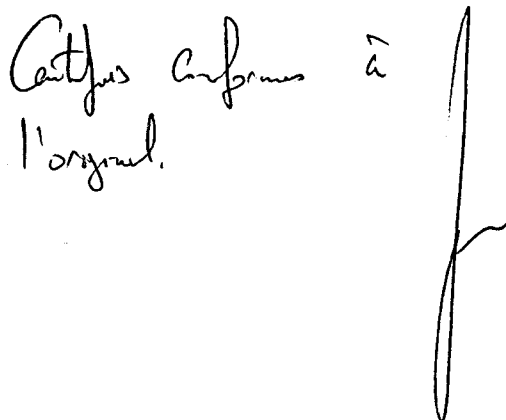 Certifiés conformes à
l'original.